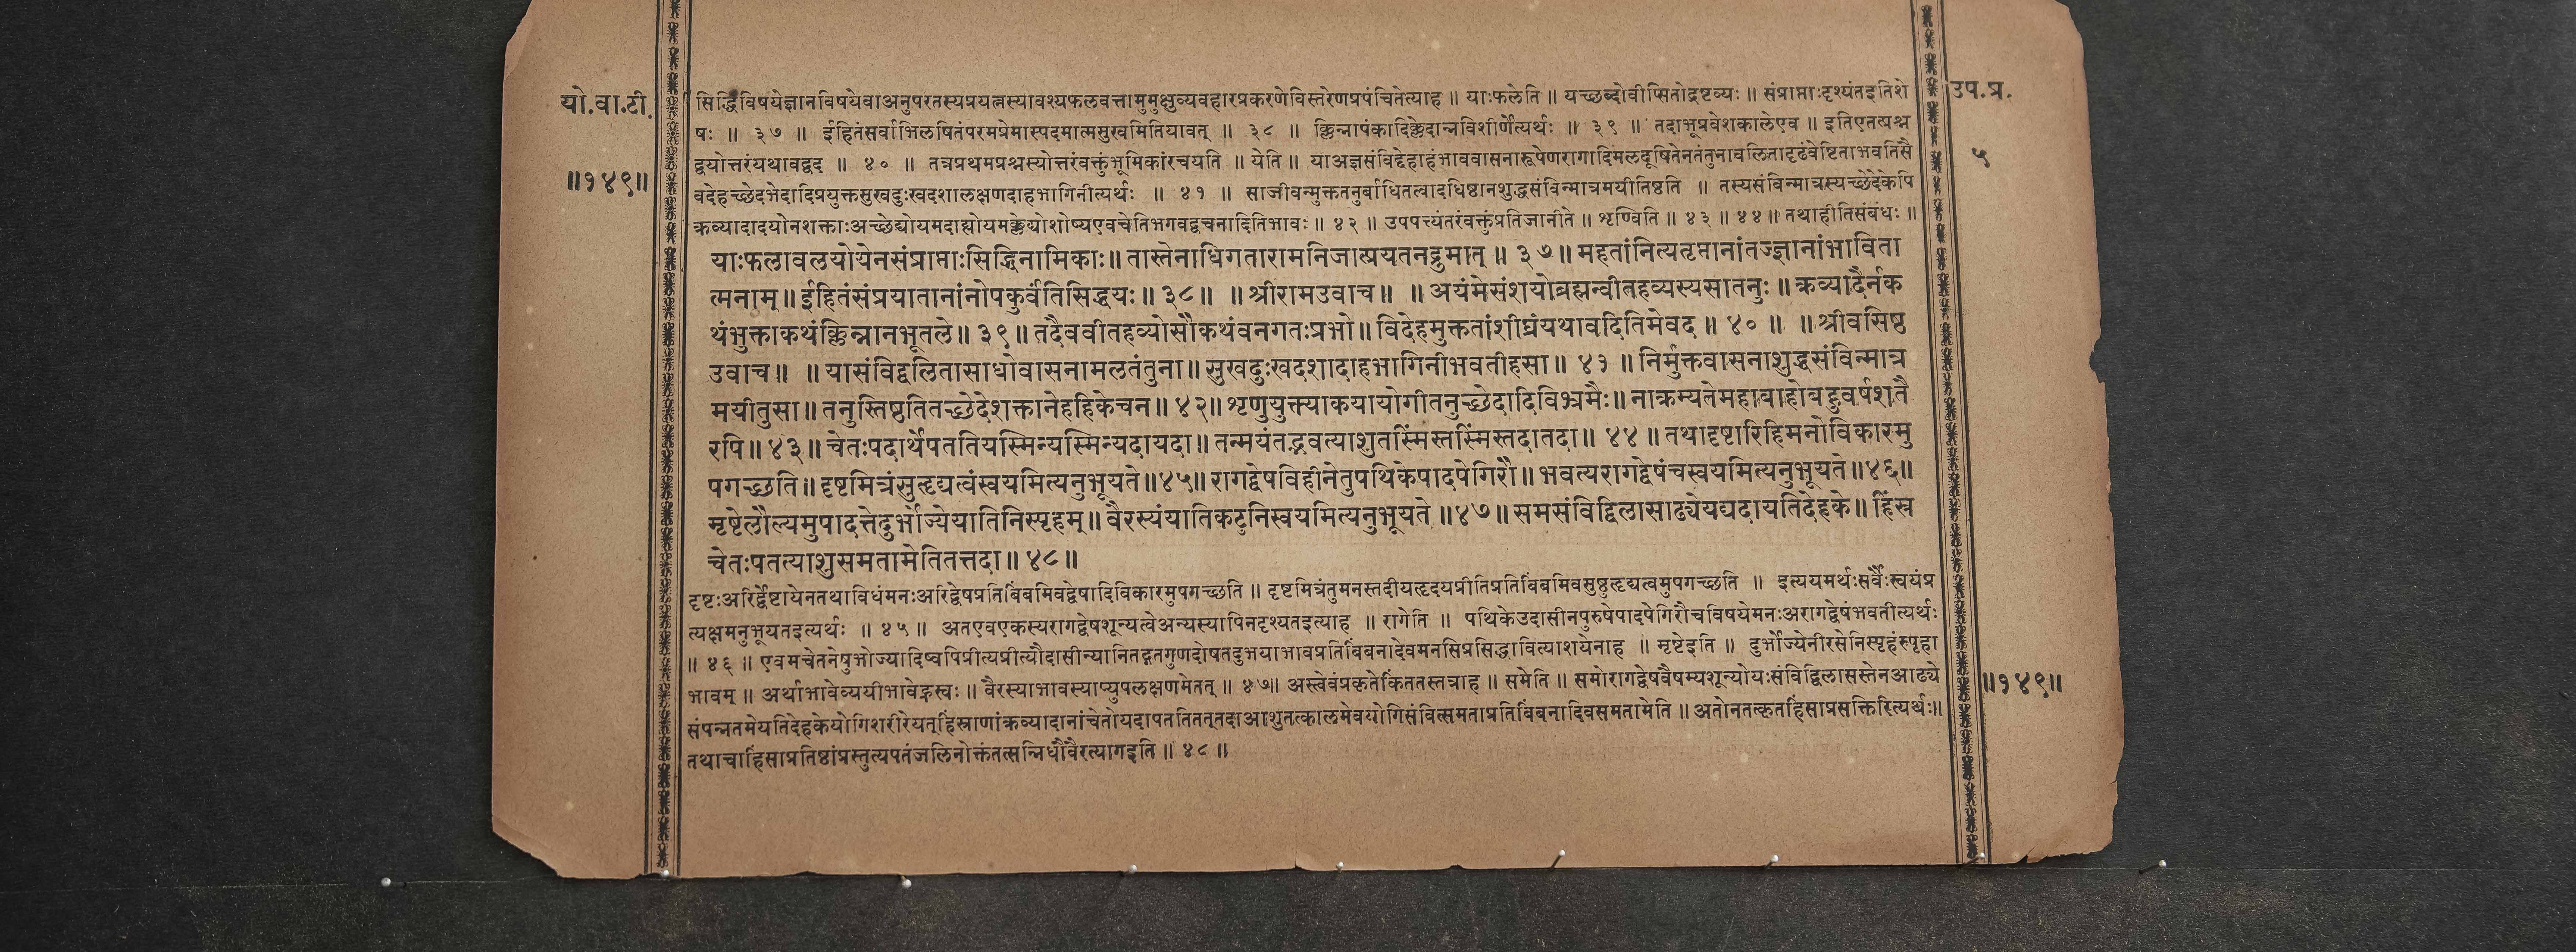 यो.वा.टी.
॥१४९॥
उप.प्र.
५
सिद्धिविषयेज्ञानविषयेवाअनुपरतस्यप्रयत्नस्यावश्यफलवत्तामुमुक्षुव्यवहारप्रकरणेविस्तरेणप्रपंचितेत्याह ॥ याःफलेति ॥ यच्छब्दोवीप्सितोद्रष्टव्यः ॥ संप्राप्ताःदृश्यंतइतिशे
षः ॥ ३७ ॥ ईहितंसर्वाभिलषितंपरमप्रेमास्पदमात्मसुखमितियावत् ॥ ३८ ॥ क्लिन्नापंकादिक्लेदान्नविशीर्णेत्यर्थः ॥ ३९ ॥ तदाभूप्रवेशकालेएव ॥ इतिएतत्प्रश्न
द्वयोत्तरंयथावद्वद ॥ ४० ॥ तत्रप्रथमप्रश्नस्योत्तरंवक्तुंभूमिकांरचयति ॥ येति ॥ याअज्ञसंविद्देहाहंभाववासनारूपेणरागादिमलदूषितेनतंतुनावलितादृढंवेष्टिताभवतिसै
वदेहच्छेदभेदादिप्रयुक्तसुखदुःखदशालक्षणदाहभागिनीत्यर्थः ॥ ४१ ॥ साजीवन्मुक्ततनुर्बाधितत्वादधिष्ठानशुद्धसंविन्मात्रमयीतिष्ठति ॥ तस्यसंविन्मात्रस्यच्छेदेकेपि
क्रव्यादादयोनशक्ताःअच्छेद्योयमदाह्योयमक्लेद्योशोष्यएवचेतिभगवद्वचनादितिभावः ॥ ४२ ॥ उपपत्त्यंतरंवक्तुंप्रतिजानीते ॥ शृण्विति ॥ ४३ ॥ ४४ ॥ तथाहीतिसंबंधः ॥
याःफलावलयोयेनसंप्राप्ताःसिद्धिनामिकाः॥ तास्तेनाधिगतारामनिजात्प्रयतनद्रुमात् ॥ ३७ ॥ महतांनित्यतृप्तानांतज्ज्ञानांभाविता
त्मनाम् ॥ ईहितंसंप्रयातानांनोपकुर्वंतिसिद्धयः ॥ ३८ ॥ ॥ श्रीरामउवाच ॥ ॥ अयंमेसंशयोब्रह्मन्वीतहव्यस्यसातनुः ॥ क्रव्यादैर्नक
थंभुक्ताकथंक्लिन्नानभूतले ॥ ३९ ॥ तदैववीतहव्योसौकथंवनगतःप्रभो ॥ विदेहमुक्ततांशीघ्रंयथावदितिमेवद ॥ ४० ॥ ॥ श्रीवसिष्ठ
उवाच ॥ ॥ यासंविद्वलितासाधोवासनामलतंतुना ॥ सुखदुःखदशादाहभागिनीभवतीहसा ॥ ४१ ॥ निर्मुक्तवासनाशुद्धसंविन्मात्र
मयीतुसा ॥ तनुस्तिष्ठतितच्छेदेशक्तानेहहिकेचन ॥ ४२ ॥ शृणुयुक्त्याकयायोगीतनुच्छेदादिविभ्रमैः ॥ नाक्रम्यतेमहाबाहोबहुवर्षशतै
रपि ॥ ४३ ॥ चेतःपदार्थेपततियस्मिन्यस्मिन्यदायदा ॥ तन्मयंतद्भवत्याशुतस्मिंस्तस्मिंस्तदातदा ॥ ४४ ॥ तथादृष्टारिहिमनोविकारमु
पगच्छति ॥ दृष्टमित्रंसुहृद्यत्वंस्वयमित्यनुभूयते ॥४५॥ रागद्वेषविहीनेतुपथिकेपादपेगिरौ ॥ भवत्यरागद्वेषंचस्वयमित्यनुभूयते ॥४६॥
मृष्टेलौल्यमुपादत्तेदुर्भोज्येयातिनिस्पृहम् ॥ वैरस्यंयातिकटुनिस्वयमित्यनुभूयते ॥४७॥ समसंविद्विलासाढ्येयद्यदायतिदेहके ॥ हिंस्र
चेतःपतत्याशुसमतामेतितत्तदा ॥ ४८ ॥
दृष्टःअरिर्द्वेष्टायेनतथाविधंमनःअरिद्वेषप्रतिबिंबमिवद्वेषादिविकारमुपगच्छति ॥ दृष्टमित्रंतुमनस्तदीयहृदयप्रीतिप्रतिबिंबमिवसुष्ठुहृद्यत्वमुपगच्छति ॥ इत्ययमर्थःसर्वैःस्वयंप्र
त्यक्षमनुभूयतइत्यर्थः ॥ ४५ ॥ अतएवएकस्यरागद्वेषशून्यत्वेअन्यस्यापिनदृश्यतइत्याह ॥ रागेति ॥ पथिकेउदासीनपुरुषेपादपेगिरौचविषयेमनःअरागद्वेषंभवतीत्यर्थः
॥ ४६ ॥ एवमचेतनेषुभोज्यादिष्वपिप्रीत्यप्रीत्यौदासीन्यानितद्गतगुणदोषतदुभयाभावप्रतिबिंबनादेवमनसिप्रसिद्धावित्याशयेनाह ॥ मृष्टेइति ॥ दुर्भोज्येनीरसेनिस्पृहंस्पृहा
भावम् ॥ अर्थाभावेव्ययीभावेह्रस्वः ॥ वैरस्याभावस्याप्युपलक्षणमेतत् ॥ ४७॥ अस्त्वेवंप्रकृतेकिंततस्तत्राह ॥ समेति ॥ समोरागद्वेषवैषम्यशून्योयःसंविद्विलासस्तेनआढ्ये
संपन्नतमेयतिदेहकेयोगिशरीरेयत्हिंस्राणांक्रव्यादानांचेतोयदापततितत्तदाआशुतत्कालमेवयोगिसंवित्समताप्रतिबिंबनादिवसमतामेति ॥ अतोनतत्कृतहिंसाप्रसक्तिरित्यर्थः॥
तथाचाहिंसाप्रतिष्ठांप्रस्तुत्यपतंजलिनोक्तंतत्सन्निधौवैरत्यागइति ॥ ४८ ॥
॥१४९॥